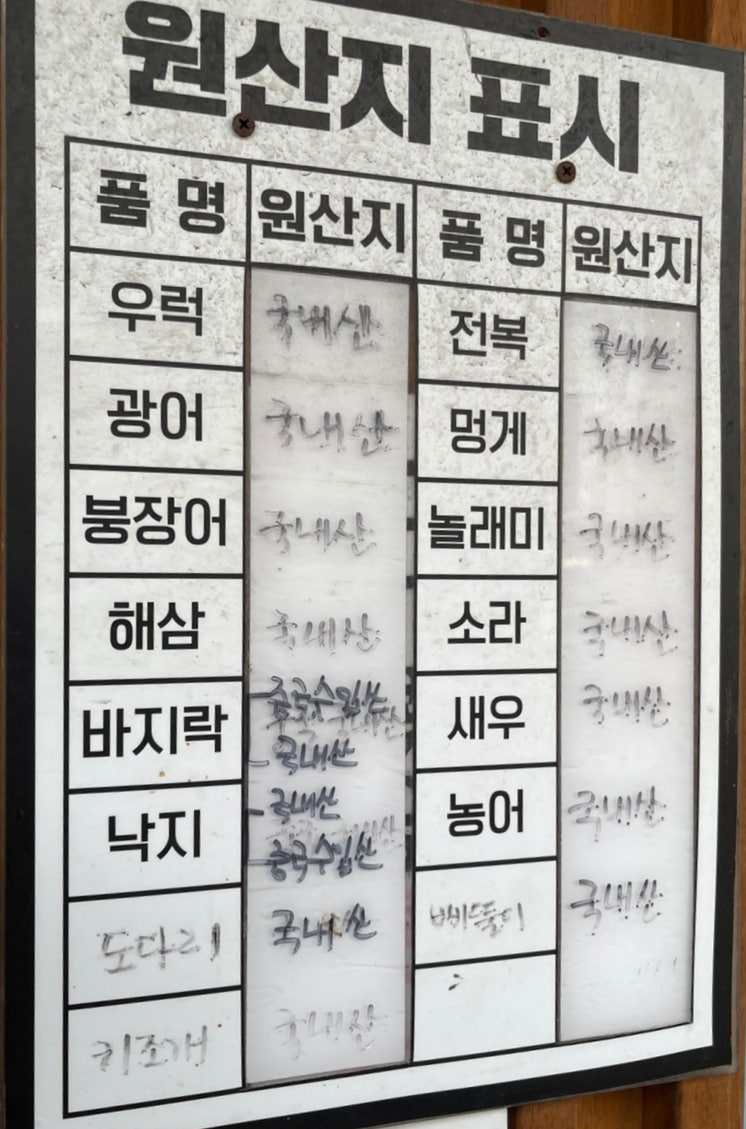 원산지 표시
품 명 원산지 품 명 원산지
우럭 국내산 전복 국내산
광어 국내산 멍게 국내산
붕장어 국내산 놀래미 국내산
해삼 국내산 소라 국내산
바지락 중국수입산 새우 국내산
국내산
낙지 국내산 농어 국내산
중국수입산
도다리 국내산 삐뚤이 국내산
키조개 국내산